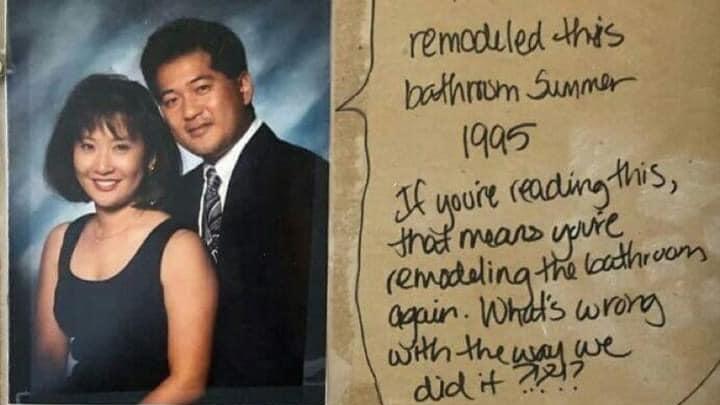 remodeled this
bathroom Summer
1995
If you're reading this,
that means you're
remodeling the bathroom
again. What's wrong
with the way we
did it ?!?!?